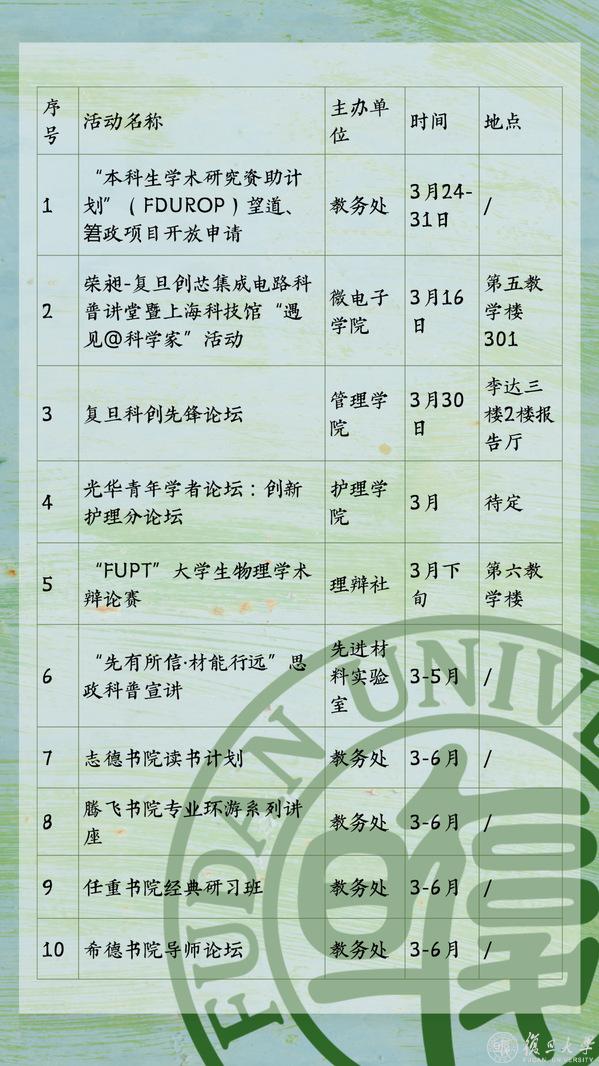 序号 活动名称 主办单位 时间 地点
1 “本科生学术研究资助计划”（FDUROP）望道、莙政项目开放申请 教务处 3月24-31日 /
2 荣昶-复旦创芯集成电路科普讲堂暨上海科技馆“遇见@科学家”活动 微电子学院 3月16日 第五教学楼301
3 复旦科创先锋论坛 管理学院 3月30日 李达三楼2楼报告厅
4 光华青年学者论坛：创新护理分论坛 护理学院 3月 待定
5 “FUPT”大学生物理学术辩论赛 理辩社 3月下旬 第六教学楼
6 “先有所信·材能行远”思政科普宣讲 先进材料实验室 3-5月 /
7 志德书院读书计划 教务处 3-6月 /
8 腾飞书院专业环游系列讲座 教务处 3-6月 /
9 任重书院经典研习班 教务处 3-6月 /
10 希德书院导师论坛 教务处 3-6月 /
FUDAN UNIVE
復旦大學
FUDAN UNIVERSITY